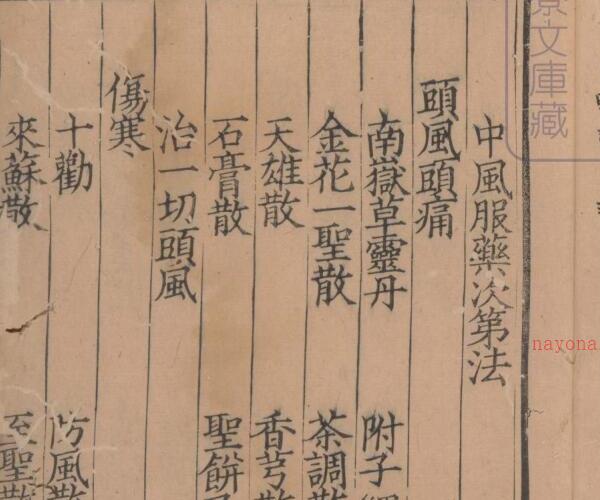 中風服藥次第法
頭風頭痛
南嶽草靈丹 附子
金花一聖散 茶調散
天雄散 香芎散
石膏散 聖餅
治一切頭風
傷寒
十勸 防風散
來蘇散 至聖散
景文庫藏
nayona